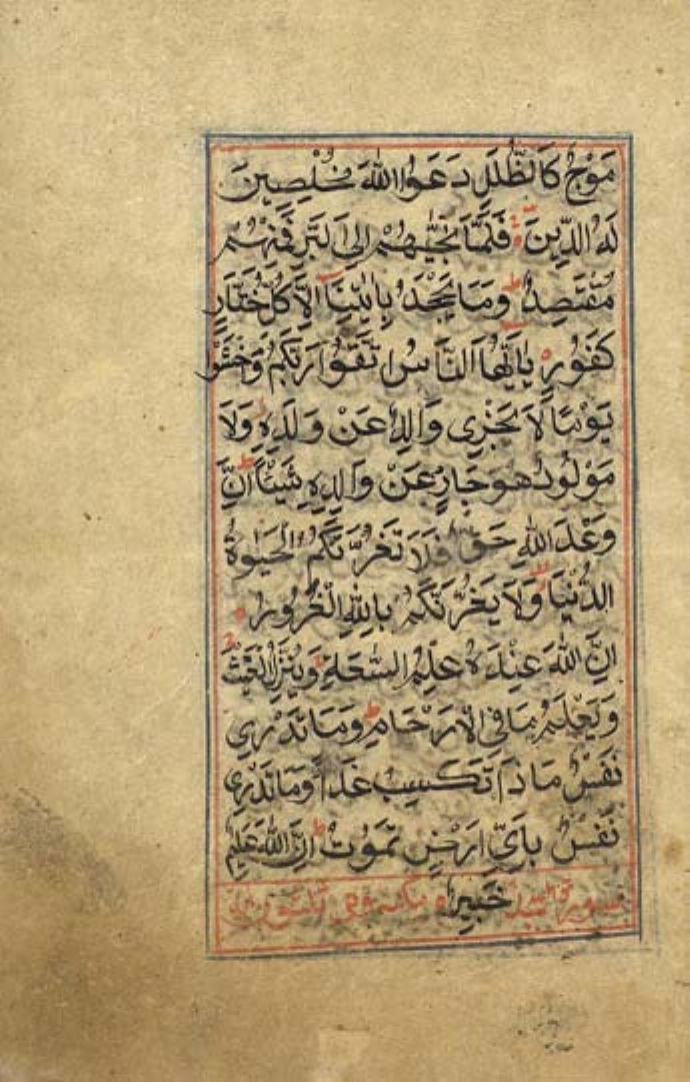 مَوْجٌ كَالظُّلَلِ دَعَوُا اللهَ مُخْلِصِينَ
لَهُ الدِّينَ فَلَمَّا نَجّٰيهُمْ اِلَى الْبَرِّ فَمِنْهُمْ
مُقْتَصِدٌ وَمَا يَجْحَدُ بِاٰيٰتِنَا اِلَّا كُلُّ خَتَّارٍ
كَفُورٍ يٰاَيُّهَا النَّاسُ اتَّقُوا رَبَّكُمْ وَاخْشَوْا
يَوْمًا لَا يَجْزِى وَالِدٌ عَنْ وَلَدِهِ وَلَا
مَوْلُودٌ هُوَ جَازٍ عَنْ وَالِدِهِ شَيْئًا اِنَّ
وَعْدَ اللهِ حَقٌّ فَلَا تَغُرَّنَّكُمُ الْحَيٰوةُ
الدُّنْيَا وَلَا يَغُرَّنَّكُمْ بِاللهِ الْغَرُورُ
اِنَّ اللهَ عِنْدَهُ عِلْمُ السَّاعَةِ وَيُنَزِّلُ الْغَيْثَ
وَيَعْلَمُ مَا فِى الْاَرْحَامِ وَمَا تَدْرِى
نَفْسٌ مَاذَا تَكْسِبُ غَدًا وَمَا تَدْرِى
نَفْسٌ بِاَىِّ اَرْضٍ تَمُوتُ اِنَّ اللهَ عَلِيمٌ
خَبِيرٌ سورة